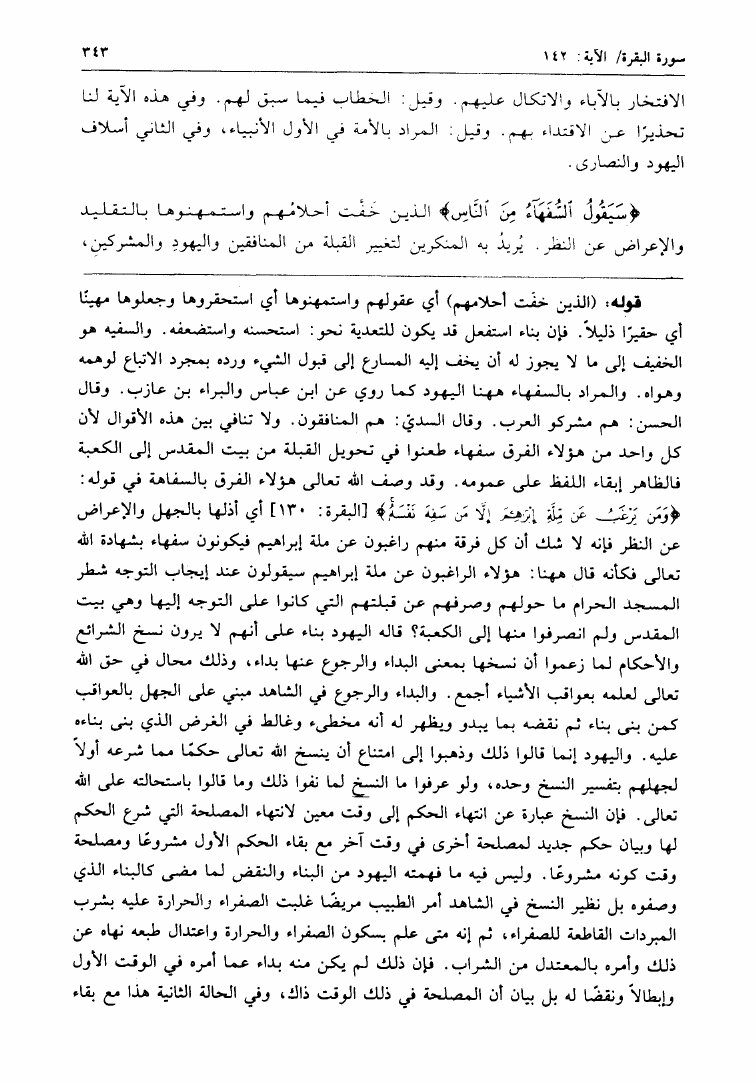 سورة البقرة/ الآية: ١٤٢
٣٤٣
الافتخار بالآباء والاتكال عليهم. وقيل: الخطاب فيما سبق لهم. وفي هذه الآية لنا
تحذيرًا عن الاقتداء بهم. وقيل: المراد بالأمة في الأول الأنبياء، وفي الثاني أسلاف
اليهود والنصارى.
﴿سَيَقُولُ ٱلسُّفَهَآءُ مِنَ ٱلنَّاسِ﴾ الذين خفّت أحلامُهم واستمهنوها بالتقليد
والإعراض عن النظر. يُريدُ به المنكرين لتغيير القبلة من المنافقين واليهودِ والمشركين،
قوله: (الذين خفّت أحلامهم) أي عقولهم واستمهنوها أي استحقروها وجعلوها مهينًا
أي حقيرًا ذليلاً. فإن بناء استفعل قد يكون للتعدية نحو: استحسنه واستضعفه. والسفيه هو
الخفيف إلى ما لا يجوز له أن يخف إليه المسارع إلى قبول الشيء ورده بمجرد الاتباع لوهمه
وهواه. والمراد بالسفهاء ههنا اليهود كما روي عن ابن عباس والبراء بن عازب. وقال
الحسن: هم مشركو العرب. وقال السديّ: هم المنافقون. ولا تنافي بين هذه الأقوال لأن
كل واحد من هؤلاء الفرق سفهاء طعنوا في تحويل القبلة من بيت المقدس إلى الكعبة
فالظاهر إبقاء اللفظ على عمومه. وقد وصف الله تعالى هؤلاء الفرق بالسفاهة في قوله:
﴿وَمَن يَرْغَبُ عَن مِّلَّةِ إِبْرَٰهِـۧمَ إِلَّا مَن سَفِهَ نَفْسَهُۥ﴾ [البقرة: ١٣٠] أي أذلها بالجهل والإعراض
عن النظر فإنه لا شك أن كل فرقة منهم راغبون عن ملة إبراهيم فيكونون سفهاء بشهادة الله
تعالى فكأنه قال ههنا: هؤلاء الراغبون عن ملة إبراهيم سيقولون عند إيجاب التوجه شطر
المسجد الحرام ما حولهم وصرفهم عن قبلتهم التي كانوا على التوجه إليها وهي بيت
المقدس ولم انصرفوا منها إلى الكعبة؟ قاله اليهود بناء على أنهم لا يرون نسخ الشرائع
والأحكام لما زعموا أن نسخها بمعنى البداء والرجوع عنها بداء، وذلك محال في حق الله
تعالى لعلمه بعواقب الأشياء أجمع. والبداء والرجوع في الشاهد مبني على الجهل بالعواقب
كمن بنى بناء ثم نقضه بما يبدو ويظهر له أنه مخطىء وغالط في الغرض الذي بنى بناءه
عليه. واليهود إنما قالوا ذلك وذهبوا إلى امتناع أن ينسخ الله تعالى حكمًا مما شرعه أولاً
لجهلهم بتفسير النسخ وحده، ولو عرفوا ما النسخ لما نفوا ذلك وما قالوا باستحالته على الله
تعالى. فإن النسخ عبارة عن انتهاء الحكم إلى وقت معين لانتهاء المصلحة التي شرع الحكم
لها وبيان حكم جديد لمصلحة أخرى في وقت آخر مع بقاء الحكم الأول مشروعًا ومصلحة
وقت كونه مشروعًا. وليس فيه ما فهمته اليهود من البناء والنقض لما مضى كالبناء الذي
وصفوه بل نظير النسخ في الشاهد أمر الطبيب مريضًا غلبت الصفراء والحرارة عليه بشرب
المبردات القاطعة للصفراء، ثم إنه متى علم بسكون الصفراء والحرارة واعتدال طبعه نهاه عن
ذلك وأمره بالمعتدل من الشراب. فإن ذلك لم يكن منه بداء عما أمره في الوقت الأول
وإبطالاً ونقضًا له بل بيان أن المصلحة في ذلك الوقت ذاك، وفي الحالة الثانية هذا مع بقاء